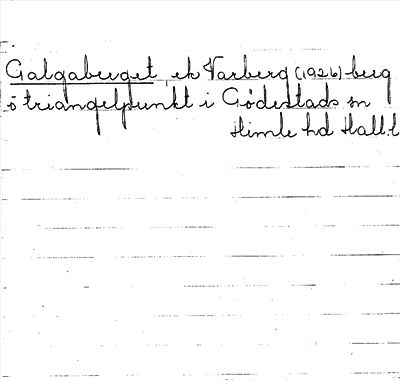 Galgaberget, ek Varberg (1926) berg
o triangelpunkt i Gödestads sn
Himle hd Hall. l